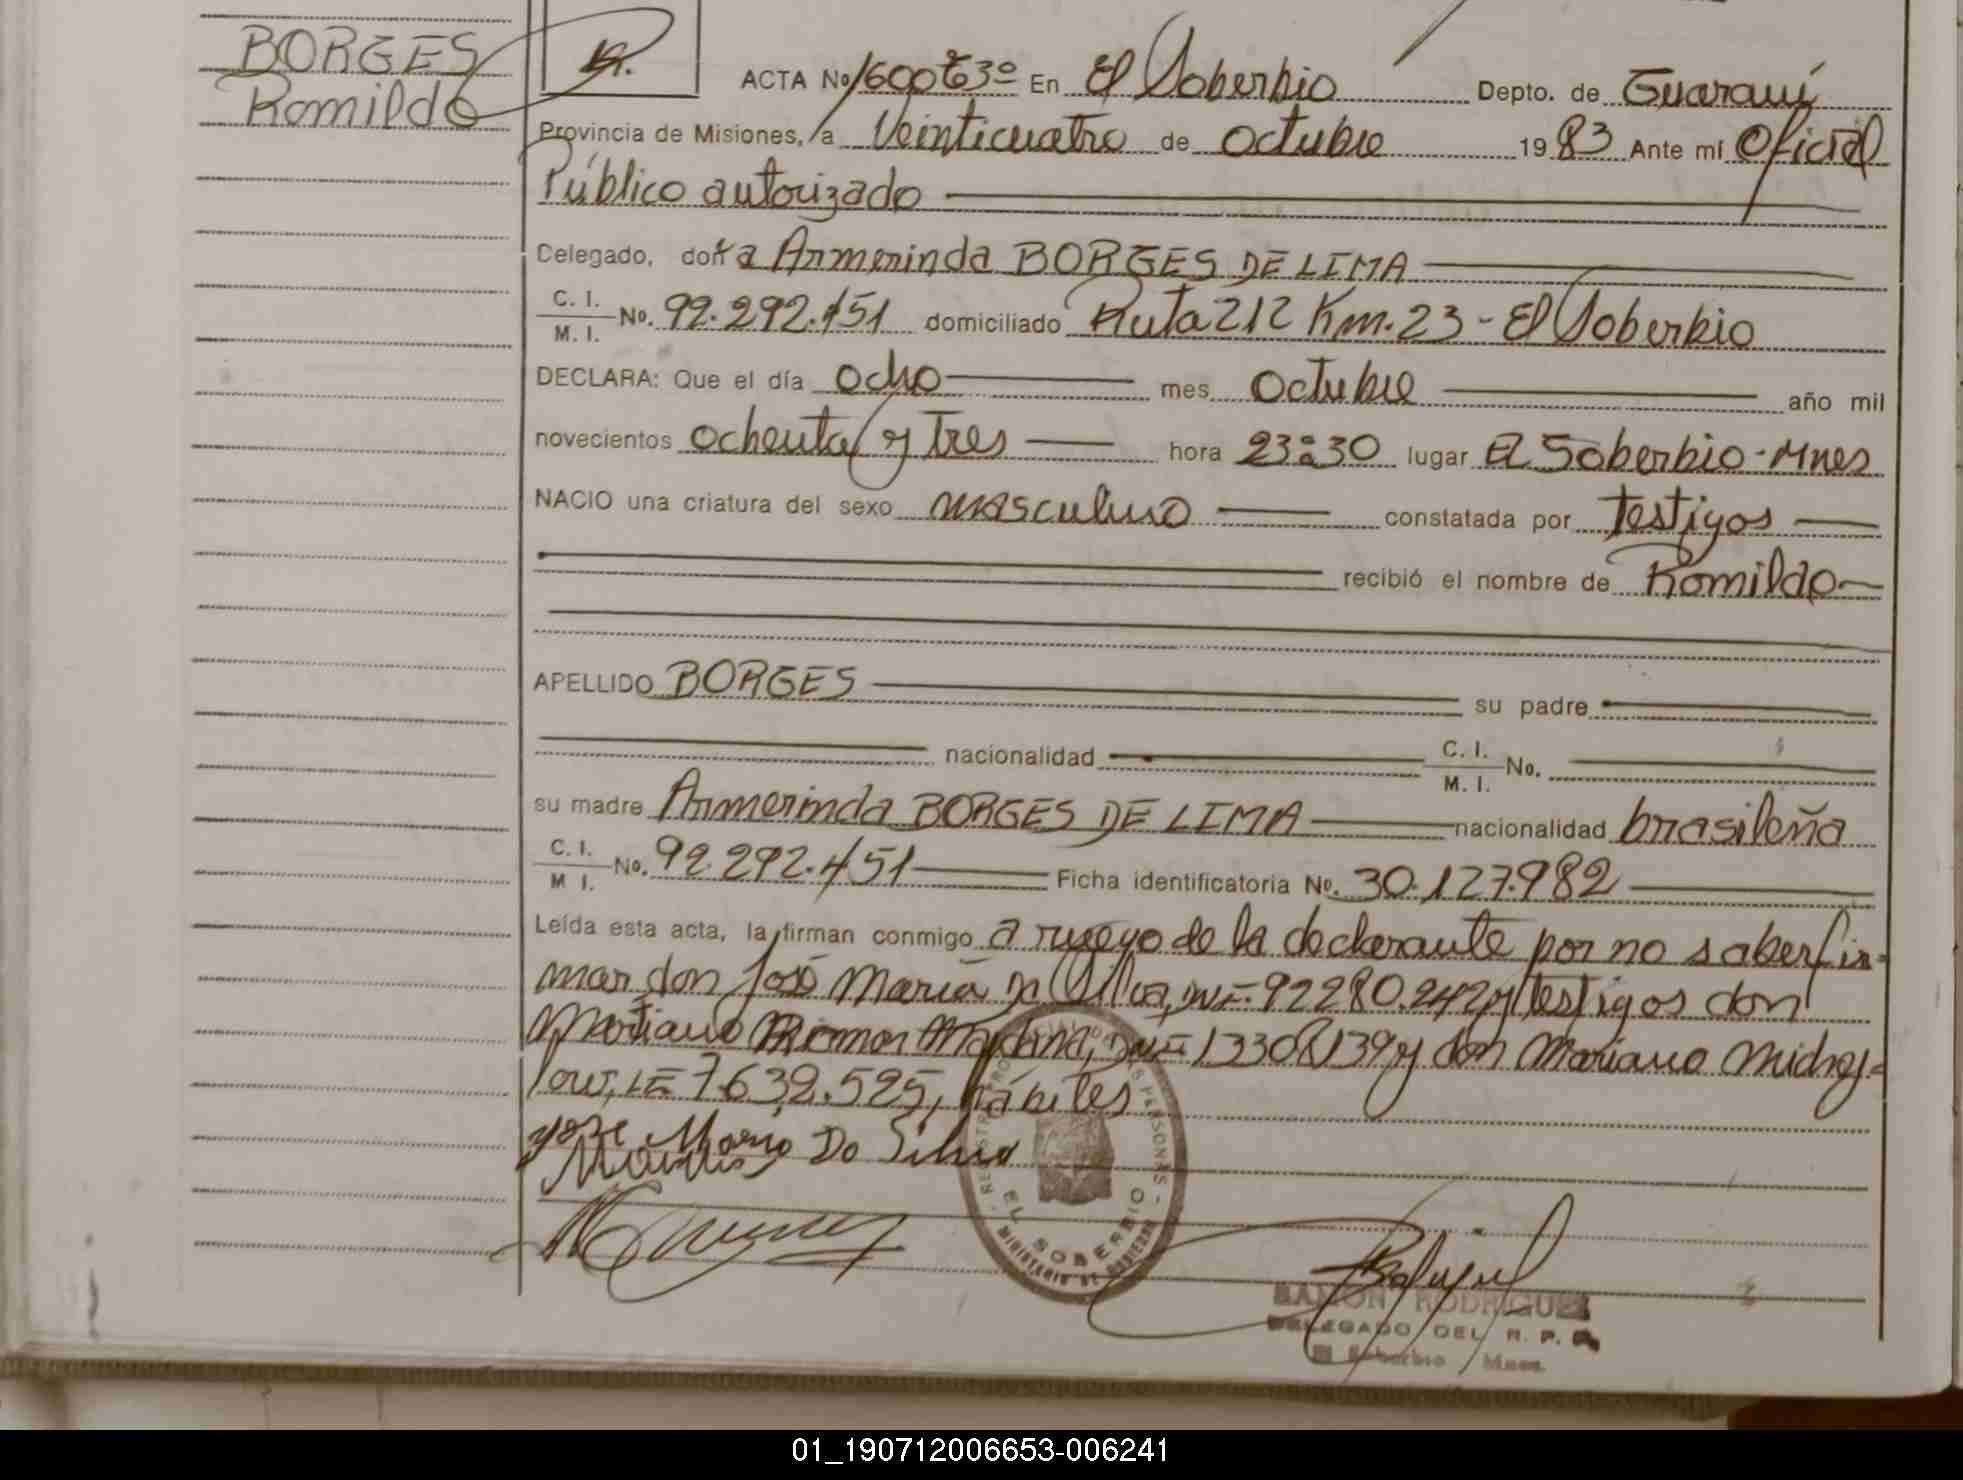 BORGES
Romildo
ACTA No 1600 t3º En El Soberbio Depto. de Guaraní
Provincia de Misiones, a Veinticuatro de octubre 1983 Ante mí Oficial
Público autorizado
Celegado, doña Armerinda BORGES DE LIMA
C. I.
M. I. No. 92.292.451 domiciliado Ruta 212 Km. 23 - El Soberbio
DECLARA: Que el día ocho mes octubre año mil
novecientos ochenta y tres hora 23:30 lugar El Soberbio - Mnes
NACIO una criatura del sexo masculino constatada por testigos
recibió el nombre de Romildo
APELLIDO BORGES su padre
nacionalidad C. I.
M. I. No.
su madre Armerinda BORGES DE LIMA nacionalidad brasileña
C. I.
M I. No. 92.292.451 Ficha identificatoria No. 30.127.982
Leída esta acta, la firman conmigo a ruego de la declarante por no saber fir=
mar don José María Da Silva, DNI=92280.242 y testigos don
Mariano Medina, DNI= y don Mariano
LE=7.632.525, hábiles
Jose Mario Do Silva
EL SOBERBIO
MINISTERIO DE GOBIERNO
RAMON RODRIGUEZ
DELEGADO DEL R. P. P.
El Soberbio Mnes.
01_190712006653-006241